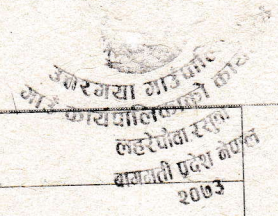 उत्तरगया गाउँपालि
गाउँ कार्यपालिकाको का
लहरेपौवा रसुवा
बागमती प्रदेश नेपाल
२०७३